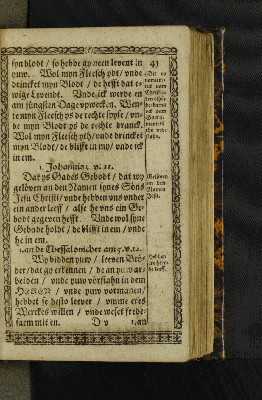 syn blodt / so hebbe gy neen levent in
yuw. Wol myn Fleesch ydt / vnde
drincket myn Blodt / de hefft dat e-
wige Levendt. Vnde ick werde en
am jüngsten Dage vpwecken. Wen-
te myn Fleesch ys de rechte spyse / vn-
de myn Blodt ys de rechte dranck.
Wol myn Fleisch yth / vnde drincket
myn Blodt / de blifft in my / vnde ick
in em.
1. Johannis 3. v. 22.
Dat ys Gades Gebodt / dat wy
gelöven an den Namen synes Söns
Jesu Christi / vnde hebben vns vnder
ein ander leeff / alse he vns ein Ge-
bodt gegeven hefft. Vnde wol syne
Gebade holdt / de blifft in em / vnde
he in em.
1. an de Thessalonicher am 5. v. 12.
Wy bidden yuw / leeven Brö-
der / dat gy erkennen / de an yuw ar-
beiden / vnde yuw vörstahn in dem
HEREN / vnde yuw vormanen /
hebbet se desto leever / vmme eres
Werckes willen / vnde weset frede-
sam mit en.
D v
1. an
43
Gelöven
an den
Namen
Jesu.